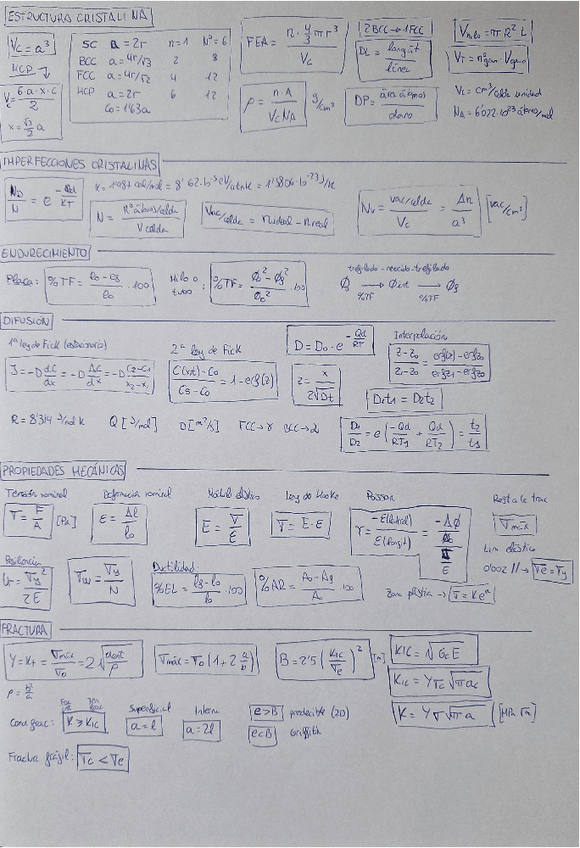 ESTRUCTURA CRISTALINA
Vc = a³
HCP
Vc = 6·a·x·c / 2
x = √3/2 a
SC a = 2r n=1 Nº=6
BCC a = 4r/√3 2 8
FCC a = 4r/√2 4 12
HCP a = 2r 6 12
Co = 1'63a
FEA = n · 4/3 πr³ / Vc
ρ = n·A / Vc NA g/cm³
2BCC → 1FCC
DL = longát / línea
DP = área átomos / plano
Vhilo = πR²·L
VT = nºgran · Vgrano
Vc = cm³/celda unidad
NA = 6'022·10²³ átomo/mol
IMPERFECCIONES CRISTALINAS
ND/N = e^(-Qd/KT)
K = 1'987 cal/mol = 8'62·10⁻⁵ eV/at·K = 1'3806·10⁻²³ J/K
N = Nº átomos/celda / V celda
Vac/celda = n ideal - n real
Nv = vac/celda / Vc = Δn / a³ [vac/cm³]
ENDURECIMIENTO
Placa: %TF = (lo - lf) / lo · 100
Hilo o tubo: %TF = (Øo² - Øf²) / Øo² · 100
trefilado - recocido - trefilado
→ Øint → Øf
%TF %TF
DIFUSIÓN
1ª ley de Fick (estacionario)
J = -D dC/dx = -D ΔC/dx = -D (C2 - C1)/(x2 - x1)
2ª ley de Fick
(C(x,t) - Co) / (Cs - Co) = 1 - erf(z)
D = Do · e^(-Qd/RT)
z = x / 2√Dt
Interpolación
(z - zo)/(z1 - zo) = (erf(z) - erfzo)/(erfz1 - erfzo)
D1t1 = D2t2
R = 8'314 J/mol K Q [J/mol] D [m²/s] FCC → γ BCC → α
D1/D2 = e(-Qd/RT1 + Qd/RT2) = t2/t1
PROPIEDADES MECÁNICAS
Tensión nominal
σ = F/A [Pa]
Deformación nominal
ε = Δl/lo
Módul elástico
E = σ/ε
Ley de Hooke
σ = E·ε
Poisson
γ = -ε(lateral) / ε(longit) = -Δø
Resist a la trac
σmáx
Lím elástico
0'002 // → σe = σy
Resiliencia
Ur = σy² / 2E
σw = σy / N
Ductilidad:
%EL = (lf - lo)/lo · 100
%AR = (Ao - Af)/Ao · 100
Zona plástica → σ = Kεⁿ
FRACTURA
Y = Kt = σmáx/σo = 2√(a/ρ)
σmáx = σo (1 + 2 a/b)
B = 2'5 (K1C/σe)² [m]
K1C = √(Gc E)
K1C = Yσc √(πac)
K = Yσ√(πa) [MPa √m]
ρ = b²/a
Cond frac: K ≥ K1C
Superficial
a = l
Interna
a = 2l
e > B predecible (2D)
e < B Griffith
Fractura frágil: σc < σe